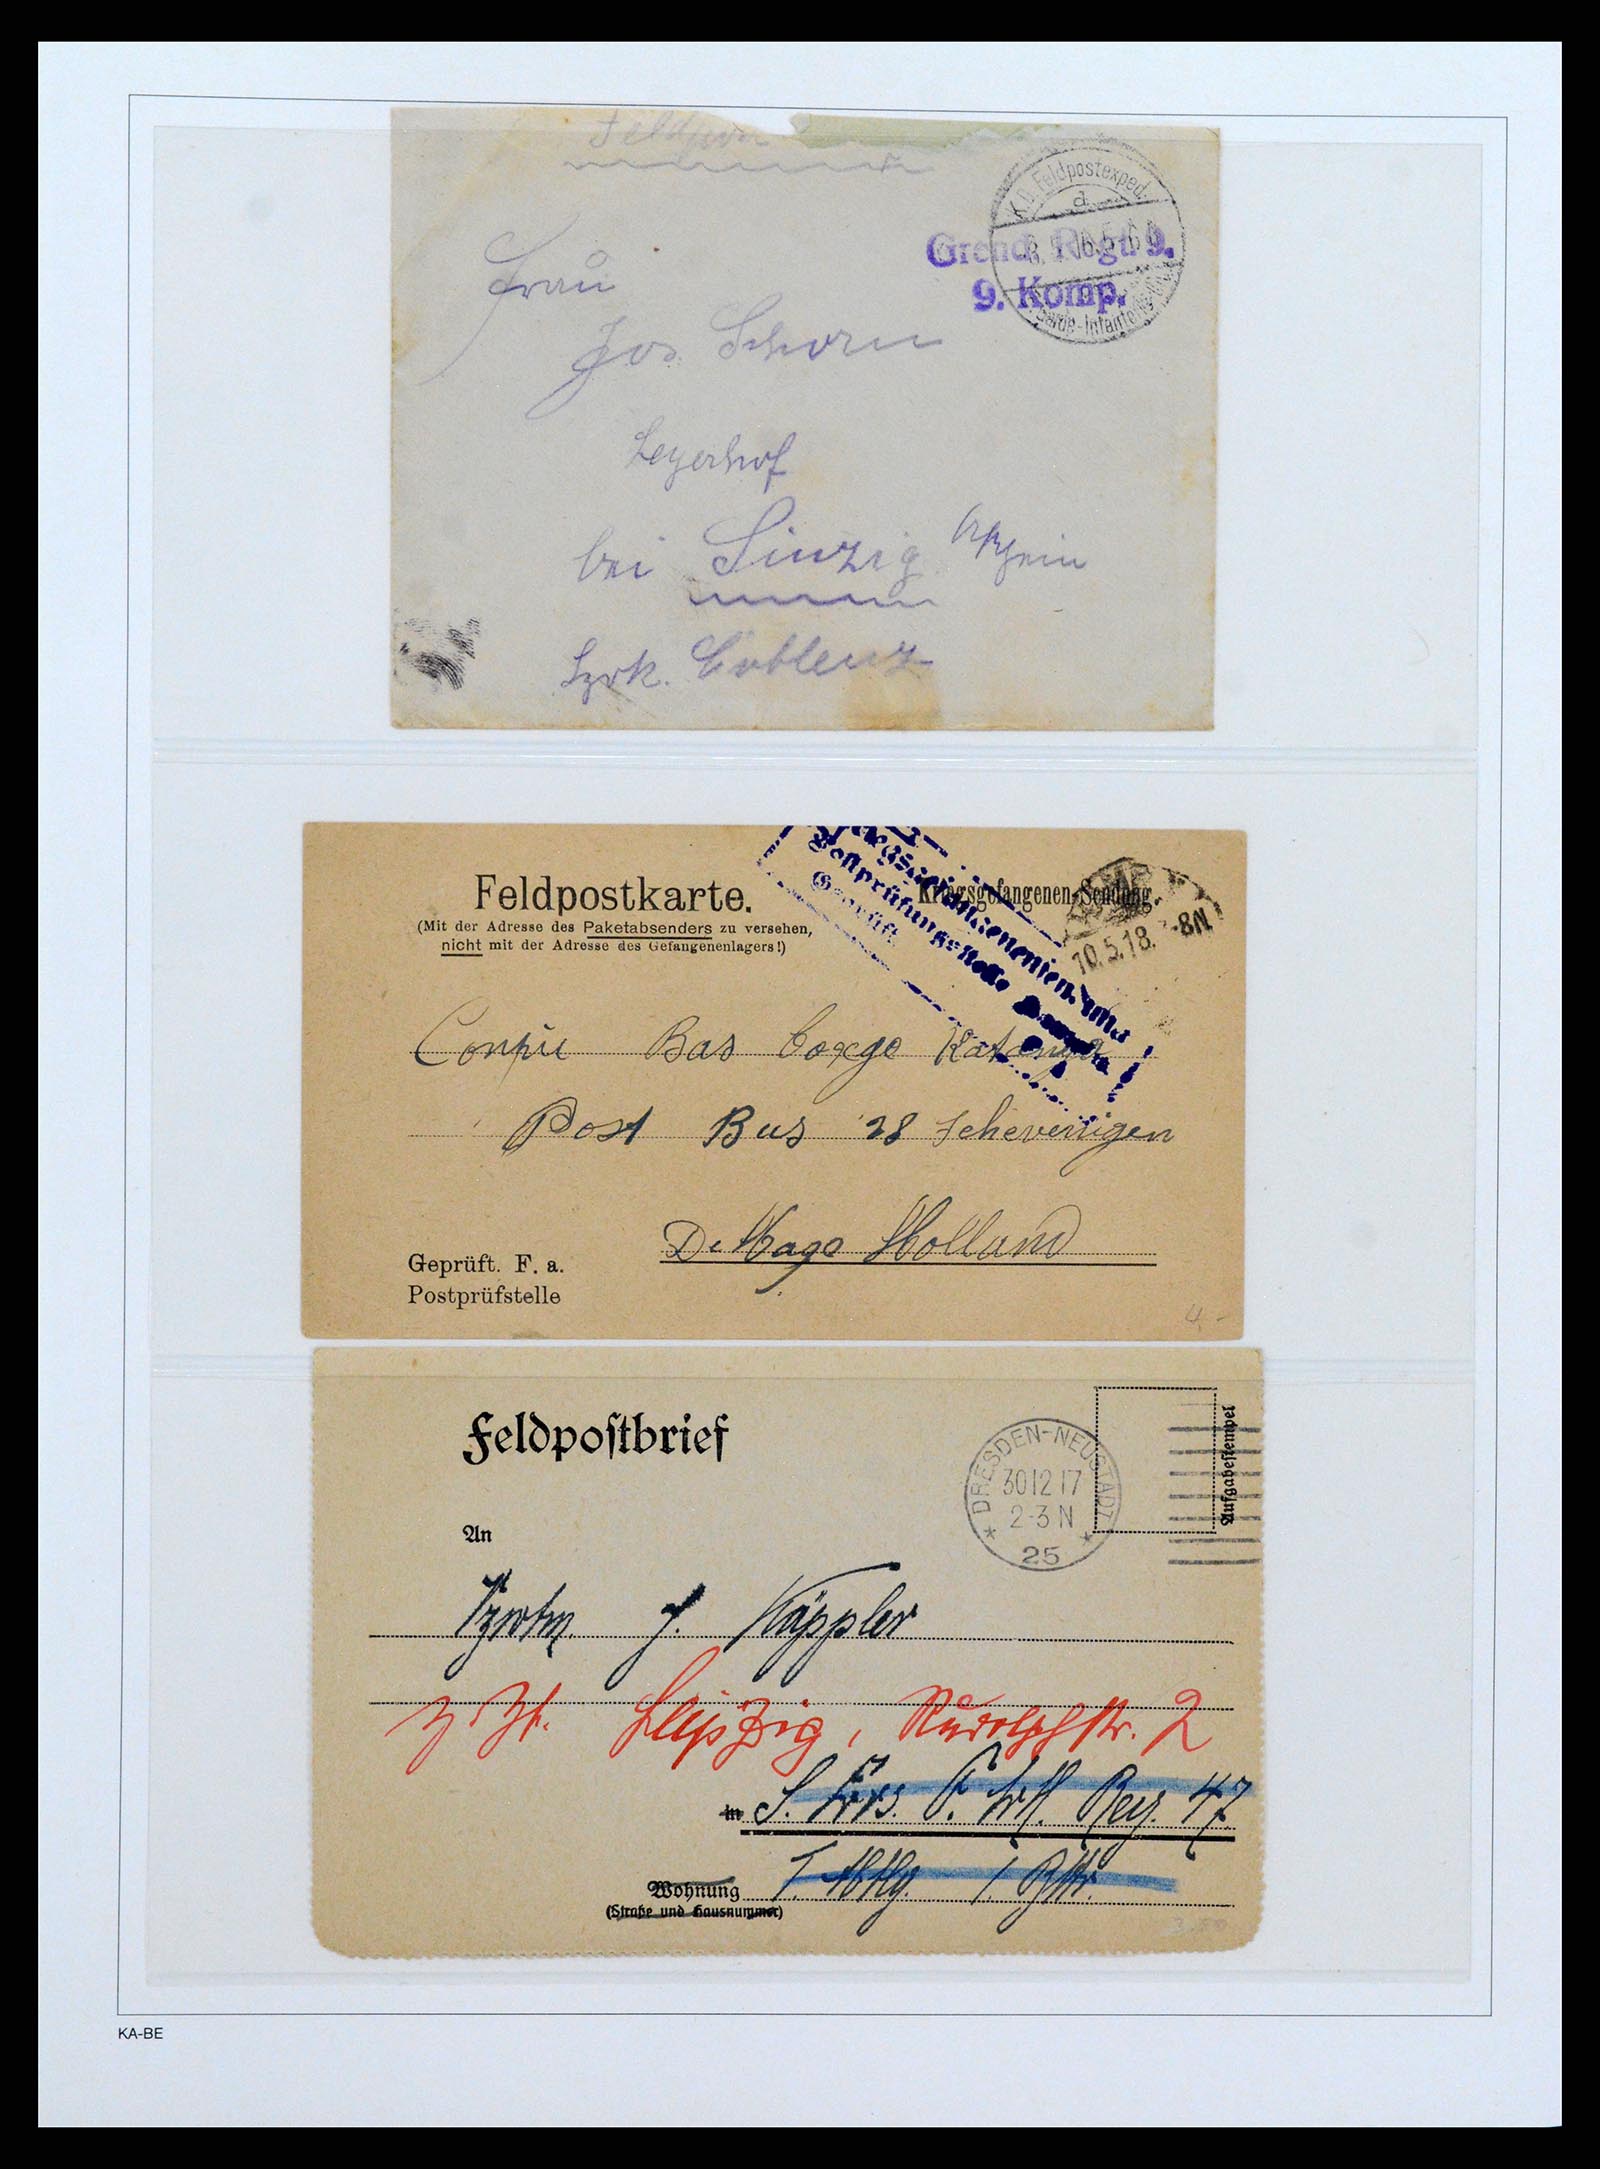 Feldpost
K.D. Feldpostexped.
d
Grend. Regt. 9.
9. Komp.
Garde-Infanterie
Frau
Jos. Schorn
Leyerhof
bei Sinzig Rhein
Bzrk. Coblenz
Feldpostkarte.
(Mit der Adresse des Paketabsenders zu versehen,
nicht mit der Adresse des Gefangenenlagers!)
Kriegsgefangenen-Sendung.
Postprüfungsstelle
Geprüft
10.5.18. -8N
Bas Congo Katanga
Post Bus 28 Scheveningen
De Hage Holland
Geprüft. F. a.
Postprüfstelle
4,-
Feldpostbrief
DRESDEN-NEUSTADT
30 12 17
2-3 N
25
Aufgabestempel
An
J. Käppler
z. Zt. Leipzig, Rudolphstr. 2
in S. Ers. F. Art. Reg. 47
Wohnung I. Abtlg. 1. Bttr.
(Straße und Hausnummer)
3.50
KA-BE